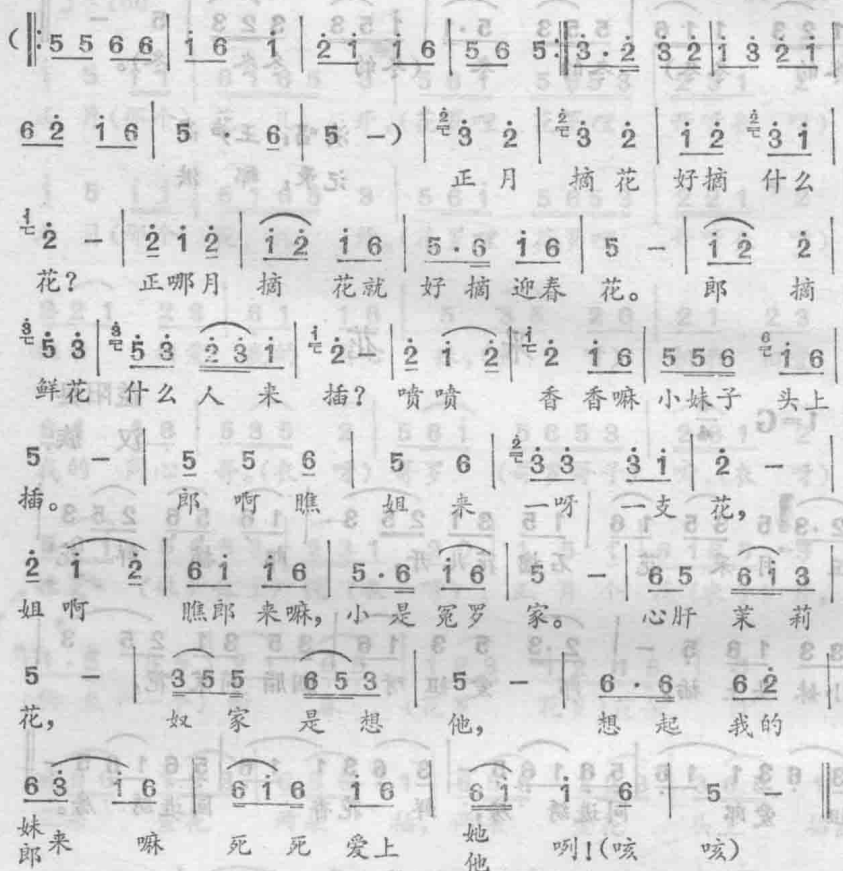 (‖:5 5 6 6 | i̇ 6 i̇ | 2̇ i̇ i̇ 6 | 5 6 5:‖ 3̇·2̇ 3̇ 2̇ | i̇ 3̇ 2̇ i̇ |
6 2̇ i̇ 6 | 5 · 6 | 5 －) | 2̇ 3̇ 2̇ | 2̇ 3̇ 2̇ | i̇ 2̇ 2̇ 3̇ i̇ |
正 月 摘 花 好摘 什么
i̇ 2̇ － | 2̇ i̇ 2̇ | i̇ 2̇ i̇ 6 | 5·6 i̇ 6 | 5 － | i̇ 2̇ 2̇ |
花？ 正哪月 摘 花就 好 摘 迎春 花。 郎 摘
3̇ 5̇ 3̇ | 3̇ 5̇ 3̇ 2̇ 3̇ i̇ | i̇ 2̇ － | 2̇ i̇ 2̇ | i̇ 2̇ i̇ 6 | 5 5 6 6 i̇ 6 |
鲜花 什么 人 来 插？ 喷喷 香 香嘛 小妹子 头上
5 － | 5 5 6 | 5 6 | 2̇ 3̇ 3̇ 3̇ i̇ | 2̇ － |
插。 郎 啊 瞧 姐 来 一呀 一支 花，
2̇ i̇ 2̇ | 6 i̇ i̇ 6 | 5·6 i̇ 6 | 5 － | 6 5 6 i̇ 3 |
姐 啊 瞧郎 来嘛，小 是 冤罗 家。 心肝 茉 莉
5 － | 3 5 5 6 5 3 | 5 － | 6·6 6 2̇ |
花， 奴 家 是 想 他， 想 起 我的
6 3̇ i̇ 6 | 6 i̇ 6 i̇ 6 | 6 i̇ i̇ 6 | 5 － ‖
妹来 嘛 死 死 爱上 她 咧！(咳 咳)
郎 他